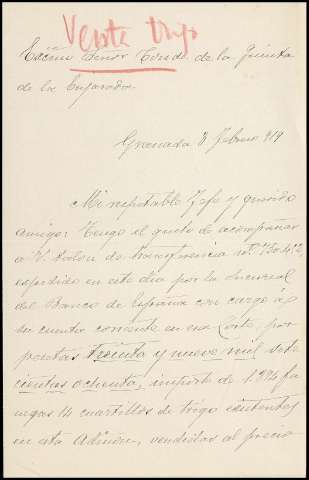 Venta trigo
Excmo Señor Conde de la Quinta
de la Enjarada
Granada 8 Febrero 919
Mi respetable Jefe y querido
amigo: Tengo el gusto de acompañar
a V. talon de transferencia nº
expedido en este dia por la Sucursal
del Banco de España con cargo á
su cuenta corriente en esa Corte, por
pesetas treinta y nueve mil sete
cientas ochenta, importe de 1.384 fa
negas 14 cuartillos de trigo existentes
en esta Admon, vendidas al precio